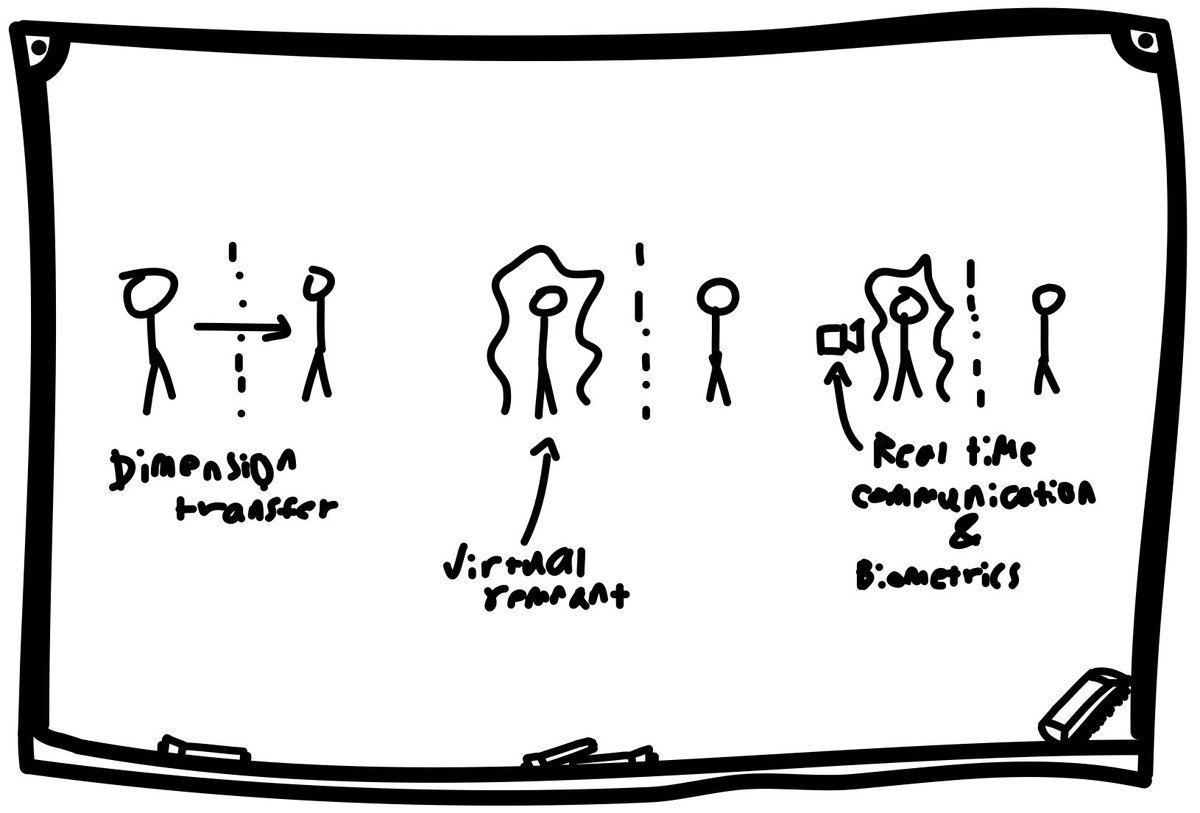 Dimension
transfer
Virtual
remnant
Real time
communication
&
Biometrics